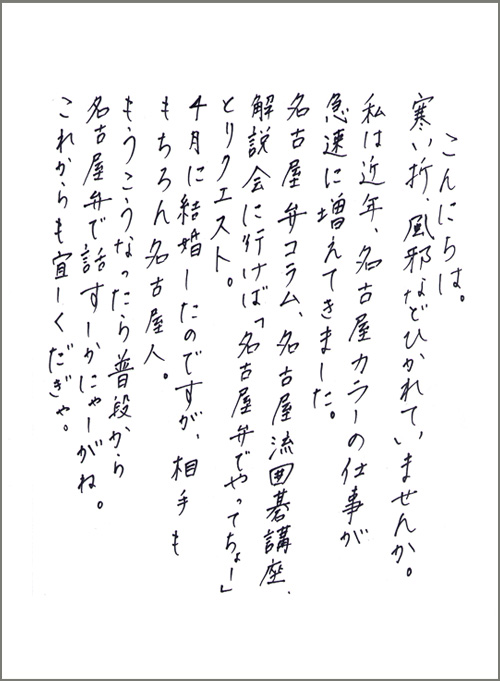 こんにちは。
寒い折、風邪などひかれていませんか。
私は近年、名古屋カラーの仕事が
急速に増えてきました。
名古屋弁コラム、名古屋流囲碁講座、
解説会に行けば「名古屋弁でやってちょー」
とリクエスト。
4月に結婚したのですが、相手も
もちろん名古屋人。
もうこうなったら普段から
名古屋弁で話すしかにゃーがね。
これからも宜しくだぎゃ。